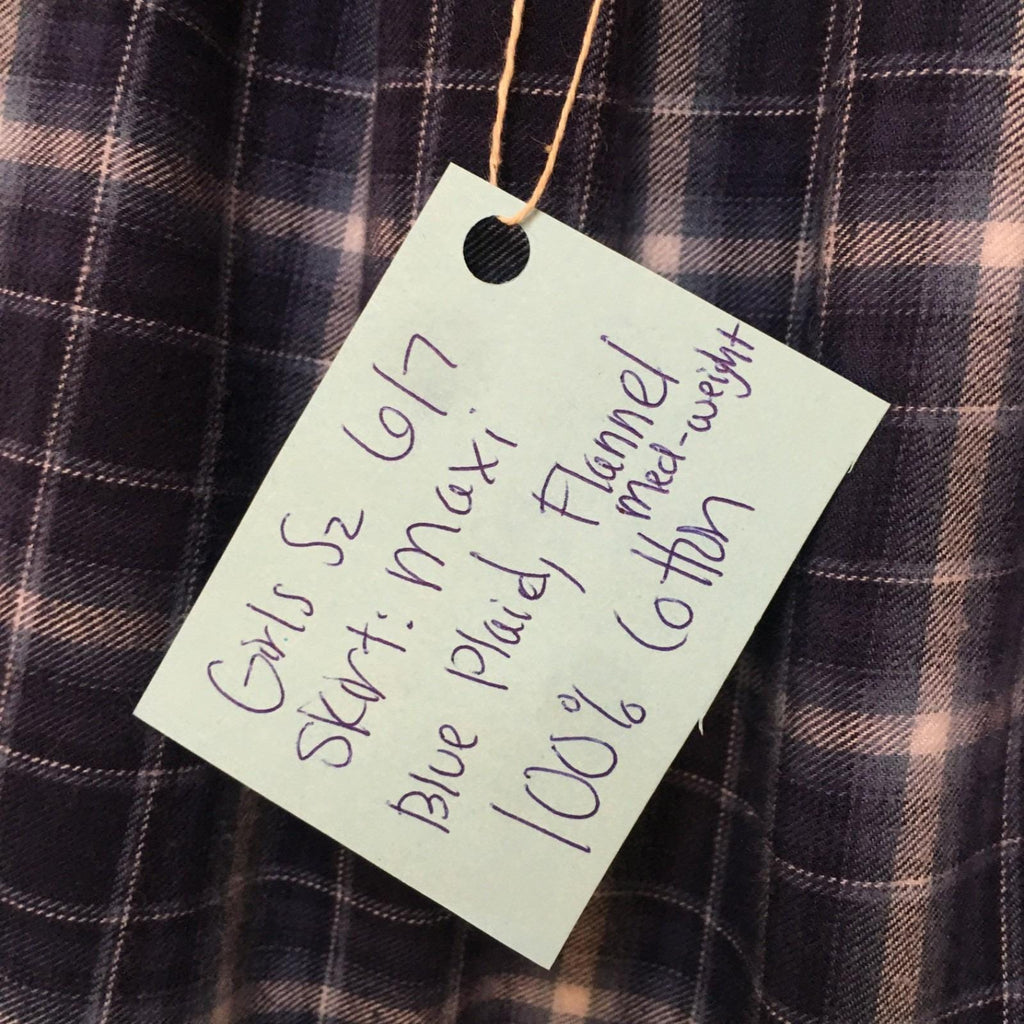 Girls Sz 6/7
Skirt: Maxi
Blue Plaid, Flannel
med-weight
100% Cotton